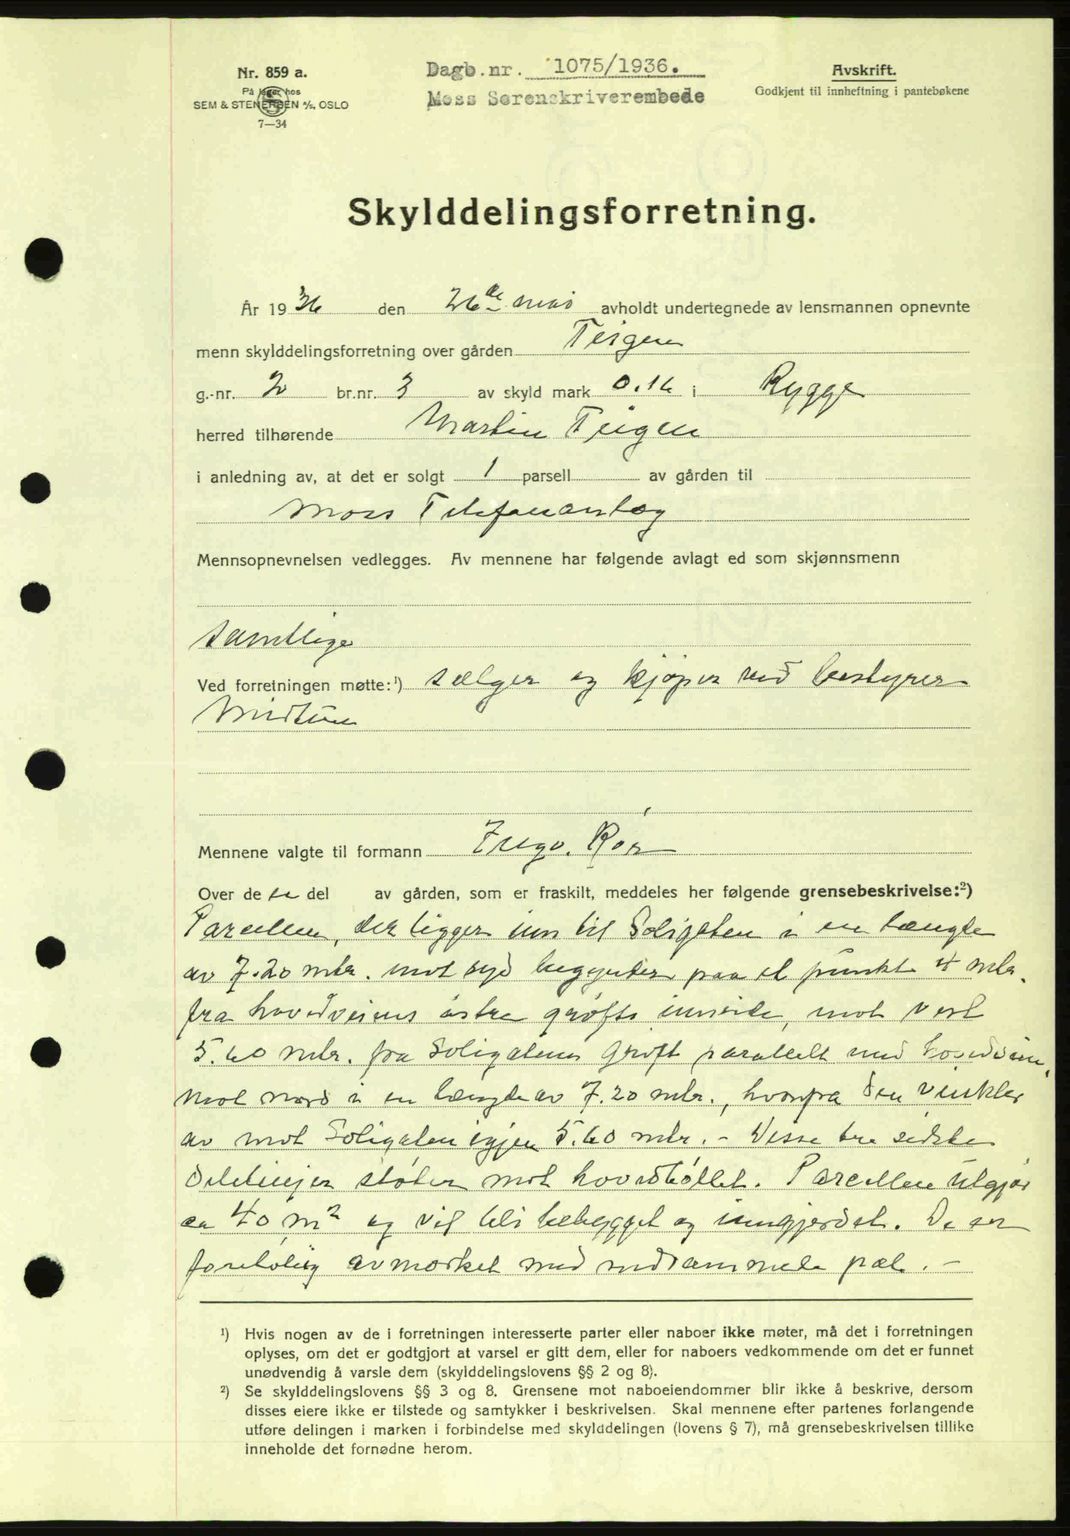 Nr. 859 a.
På lager hos
SEM & STENERSEN A/S, OSLO
7—34
Dagb.nr. 1075/1936.
Moss Sorenskriverembede
Avskrift.
Godkjent til innheftning i pantebøkene
Skylddelingsforretning.
År 1936 den 26de mai avholdt undertegnede av lensmannen opnevnte
menn skylddelingsforretning over gården Teigen
g.-nr. 2 br.nr. 3 av skyld mark 0.16 i Rygge
herred tilhørende Martin Teigen
i anledning av, at det er solgt 1 parsell av gården til
Moss Telefonanlæg
Mennsopnevnelsen vedlegges. Av mennene har følgende avlagt ed som skjønnsmenn
samtlige
Ved forretningen møtte:¹) sælger og kjøper ved bestyrer
Midtun
Mennene valgte til formann Rør
Over de del av gården, som er fraskilt, meddeles her følgende grensebeskrivelse:²)
Parcellen, der ligger inn til Soligaten i en længde
av 7.20 mtr. mot syd begynder paa et punkt 4 mtr.
fra hovedveiens østre grøfts innside, mot vest
5.60 mtr. fra Soligatens grøft parallelt med hovedveien,
mot nord i en længde av 7.20 mtr., hvorfra den vinkler
av mot Soligaten igjen 5.60 mtr. - Disse tre sidste
delelinjer støter mot hovedbøllet. Parcellen utgjør
ca 40 m² og vil bli bebygget og inngjerdet. De er
foreløbig avmerket med nedrammede pæle. —
¹) Hvis nogen av de i forretningen interesserte parter eller naboer ikke møter, må det i forretningen
oplyses, om det er godtgjort at varsel er gitt dem, eller for naboers vedkommende om det er funnet
unødvendig å varsle dem (skylddelingslovens §§ 2 og 8).
²) Se skylddelingslovens §§ 3 og 8. Grensene mot naboeiendommer blir ikke å beskrive, dersom
disses eiere ikke er tilstede og samtykker i beskrivelsen. Skal mennene efter partenes forlangende
utføre delingen i marken i forbindelse med skylddelingen (lovens § 7), må grensebeskrivelsen tillike
inneholde det fornødne herom.